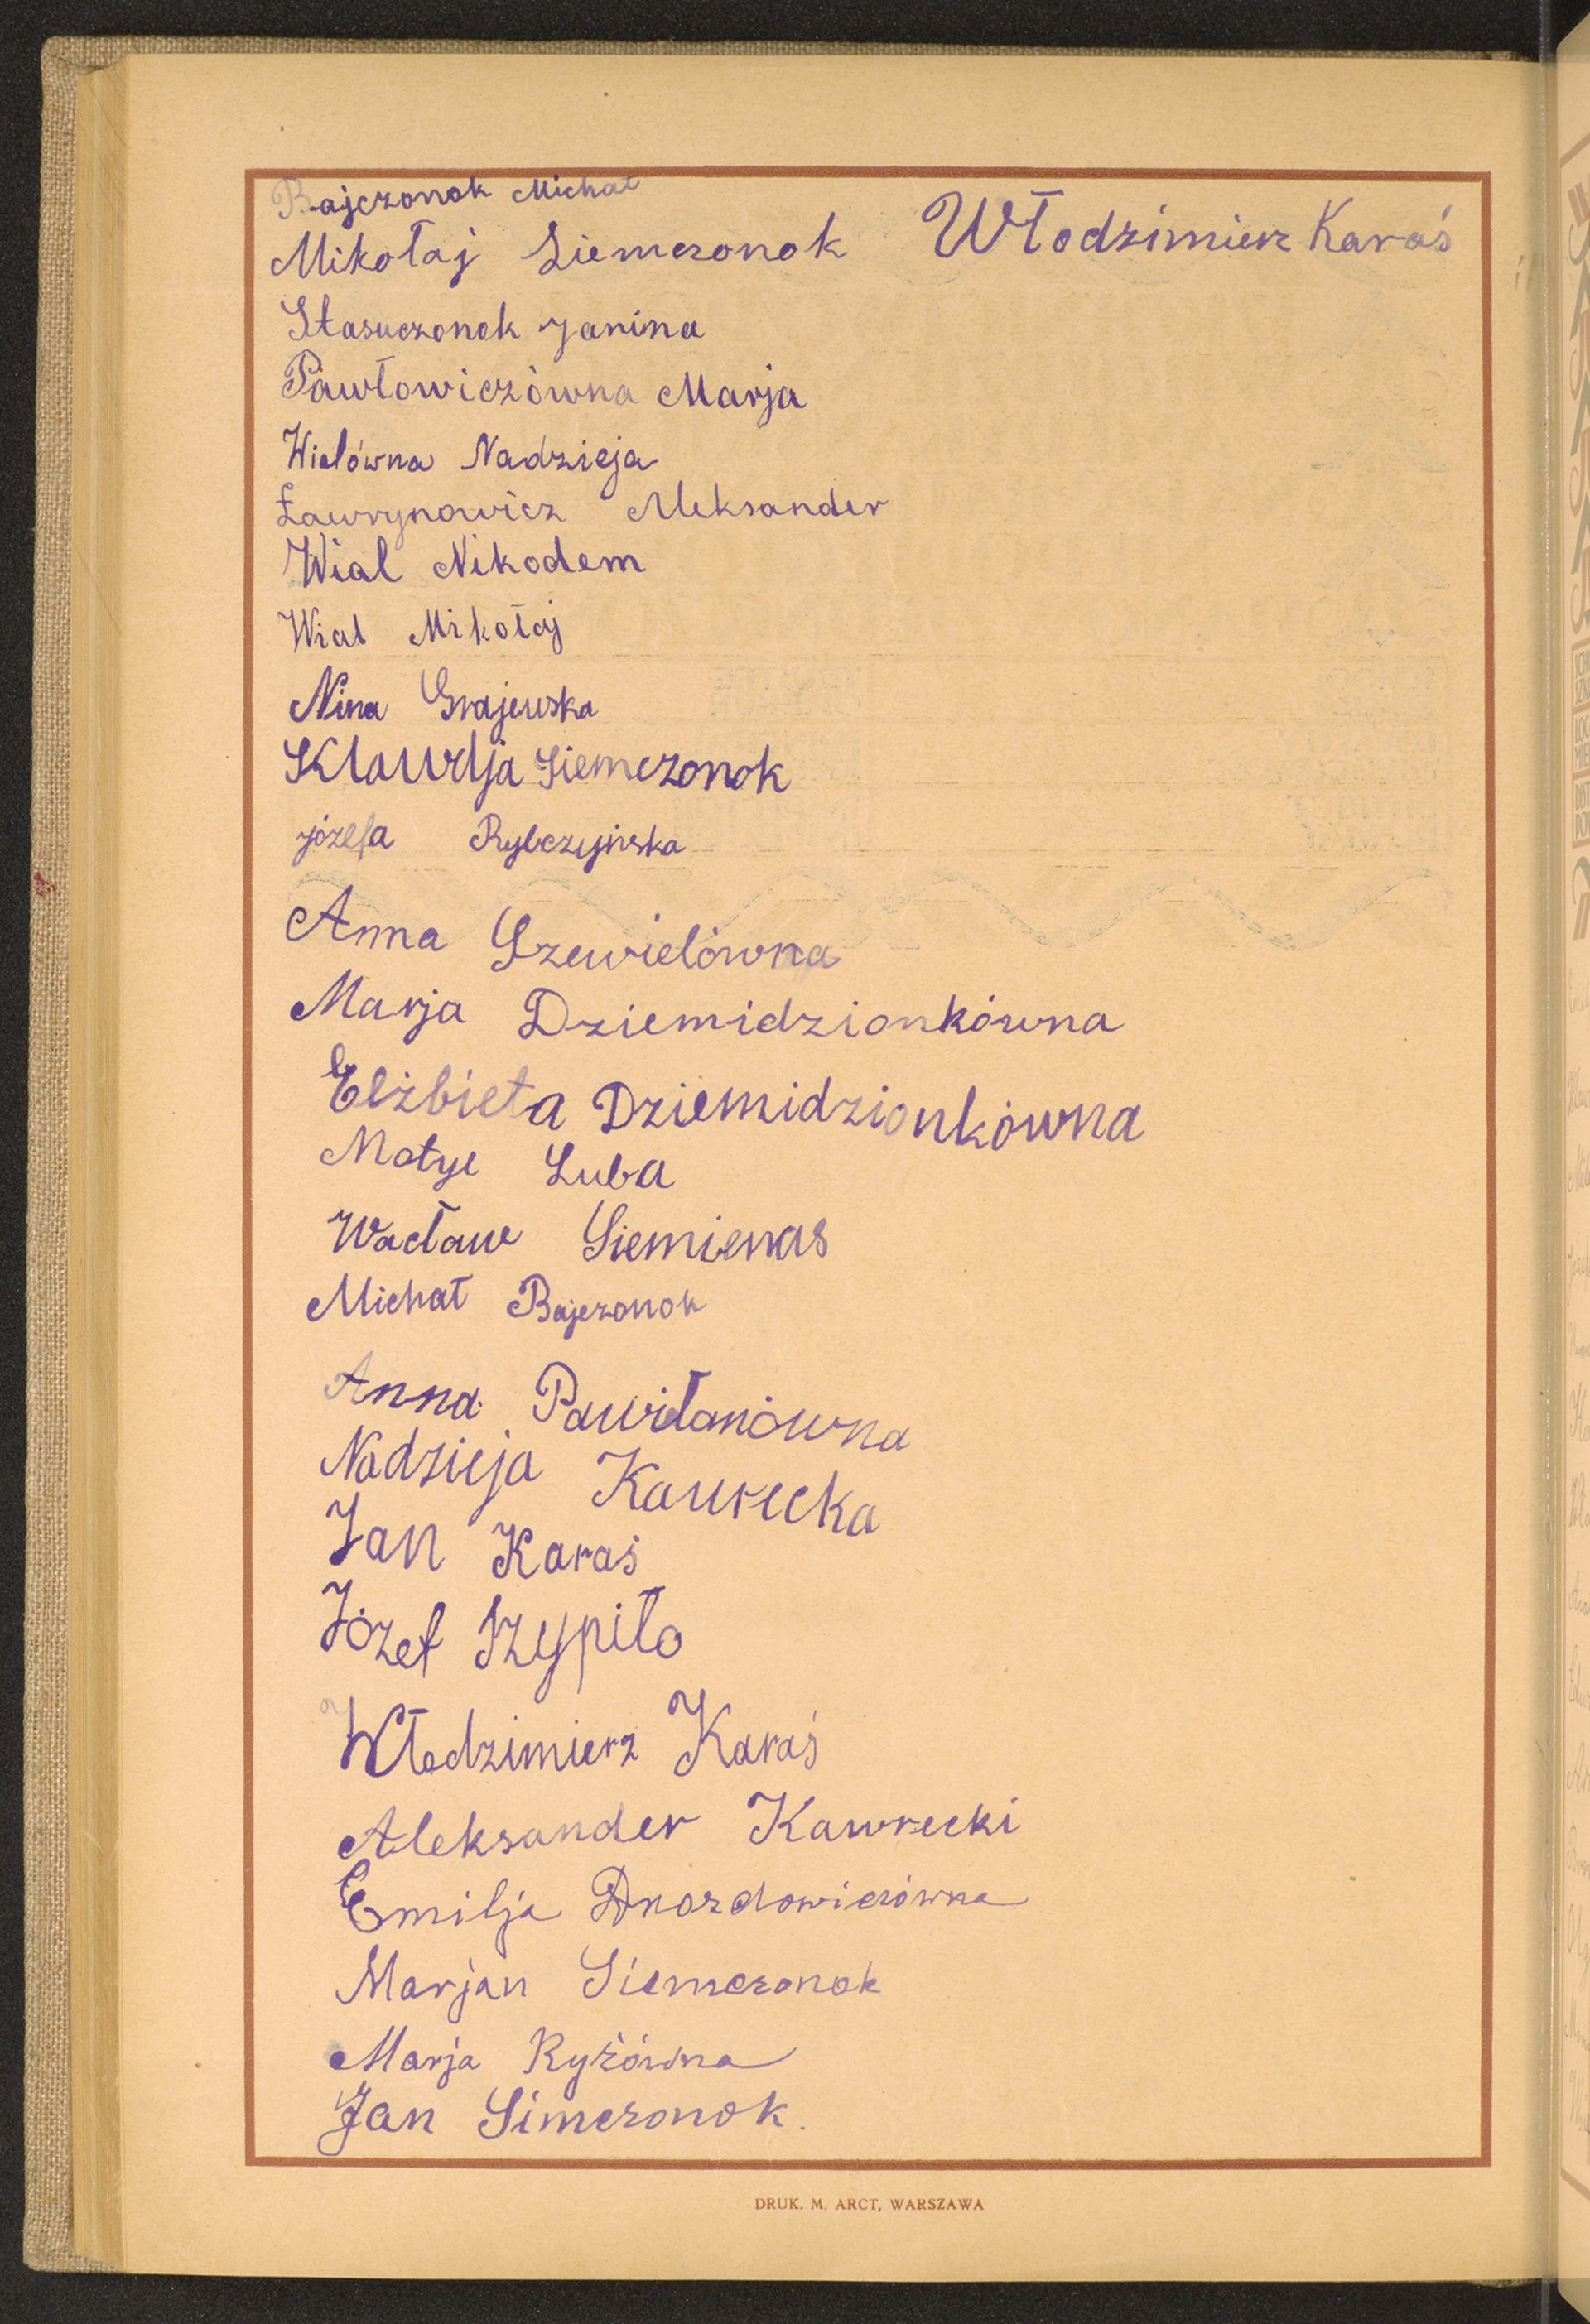 Bajczonok Michał
Mikołaj Siemczonok Włodzimierz Karaś
Stasuczonok Janina
Pawłowiczówna Marja
Wialówna Nadzieja
Ławrynowicz Aleksander
Wial Nikodem
Wial Mikołaj
Nina Grajewska
Klawdja Siemczonok
Józefa Rybczyńska
Anna Szewielówna
Marja Dziemidzionkówna
Elżbieta Dziemidzionkówna
Motyl Luba
Wacław Siemienas
Michał Bajczonok
Anna Pawiłanówna
Nadzieja Kawrecka
Jan Karaś
Józef Szypiło
Włodzimierz Karaś
Aleksander Kawrecki
Emilja Drozdowiczówna
Marjan Siemczonok
Marja Ryżówna
Jan Simczonok.
DRUK. M. ARCT, WARSZAWA